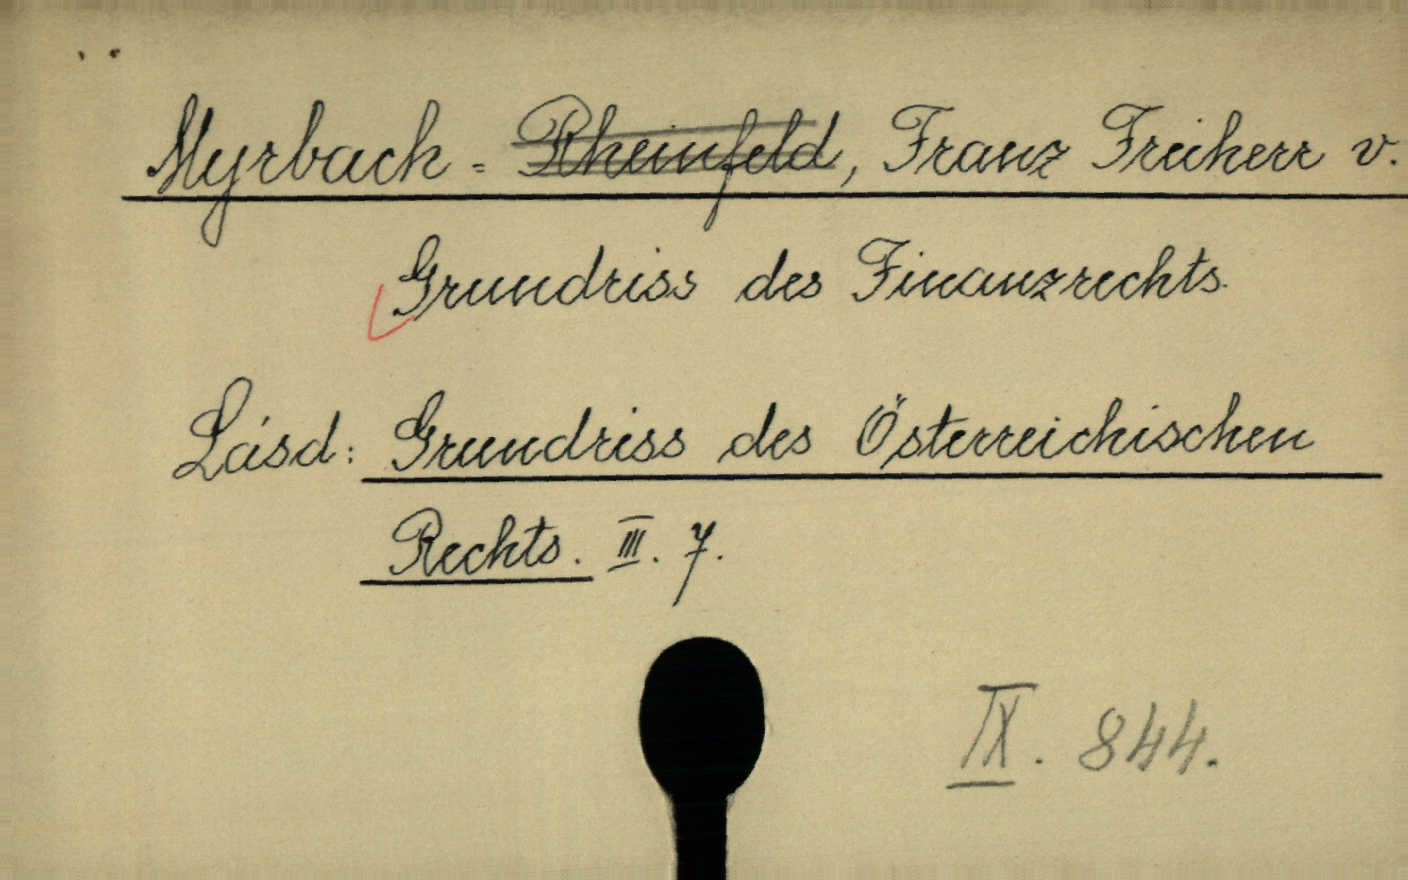 Myrbach = Rheinfeld, Franz Freiherr v.
Grundriss des Finanzrechts.
Lásd: Grundriss des Österreichischen
Rechts. III. 7.
IX. 844.